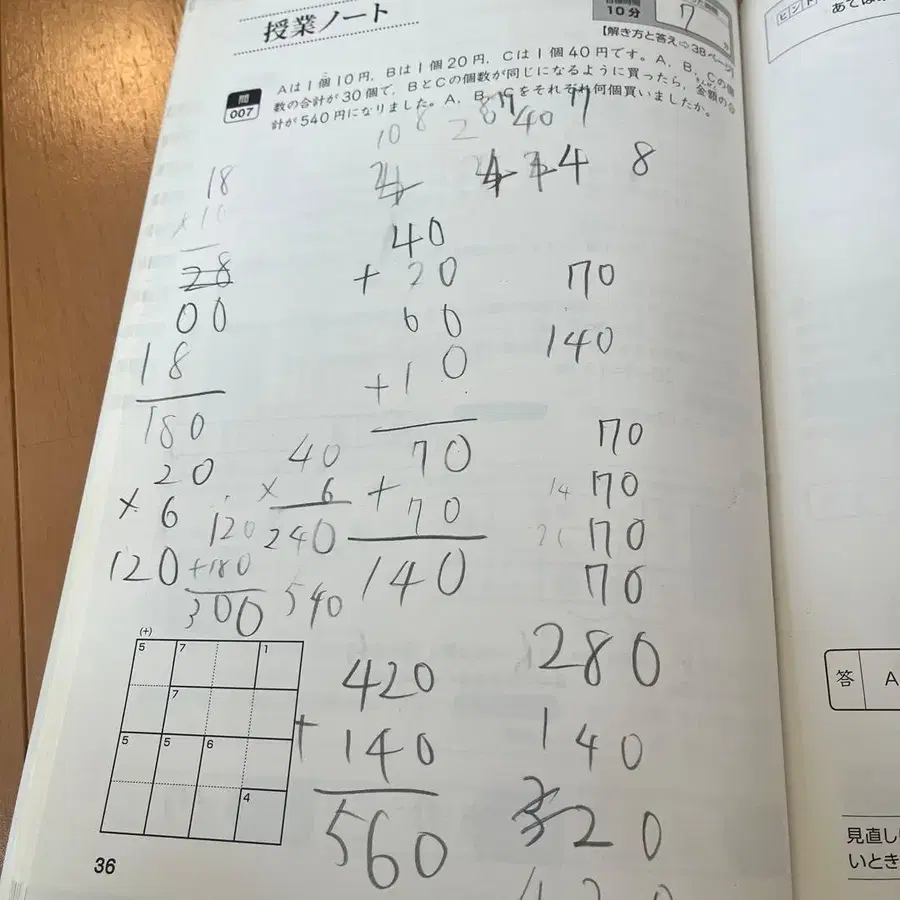 授業ノート
10分
7
ヒント
【解き方と答え⇨38ページ】
問 007
Aは1個10円，Bは1個20円，Cは1個40円です。A，B，Cの個
数の合計が30個で，BとCの個数が同じになるように買ったら，金額の合
計が540円になりました。A，B，Cをそれぞれ何個買いましたか。
10 8 2 8 40
4 8
18
×10
28
00
18
180
40
+ 20
60
+10
70
+ 70
140
70
140
20
× 6
120
40
× 6
240
120
+180
300
540
70
14 70
70
70
280
140
320
420
+ 140
560
(+)
5 7 1
7
5 5 6
4
答 A
見直し
いとき
36